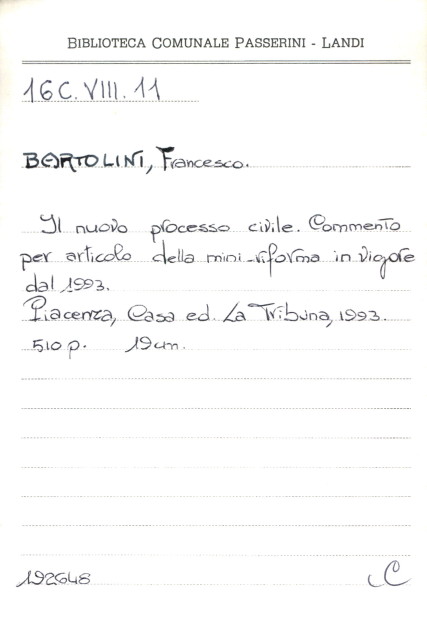 BIBLIOTECA COMUNALE PASSERINI - LANDI
16C.VIII.11
BARTOLINI, Francesco.
Il nuovo processo civile. Commento
per articolo della mini-riforma in vigore
dal 1993.
Piacenza, Casa ed. La Tribuna, 1993.
510 p. 19 cm.
192648
C